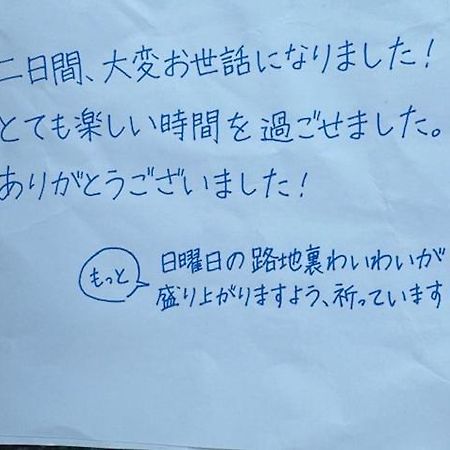 二日間、大変お世話になりました！
とても楽しい時間を過ごせました。
ありがとうございました！
もっと
日曜日の路地裏わいわいが
盛り上がりますよう、祈っています